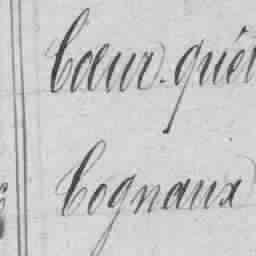 Cœur-quét
Cognaux